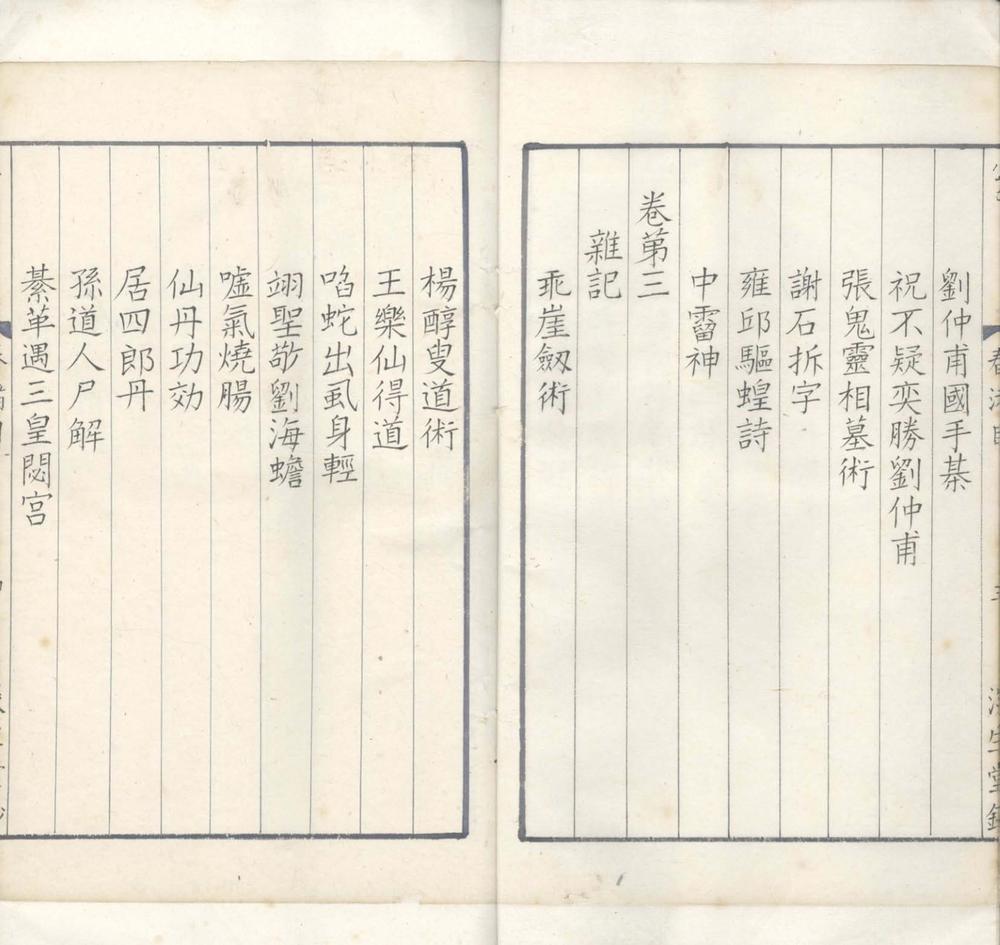 劉仲甫國手棊
祝不疑奕勝劉仲甫
張鬼靈相墓術
謝石拆字
雍邱驅蝗詩
中霤神
卷第三
雜記
乖崖劔術
楊醇叟道術
王樂仙得道
啗蛇出虱身輕
翊聖敬劉海蟾
噓氣燒腸
仙丹功効
居四郎丹
孫道人尸解
綦革遇三皇閟宮